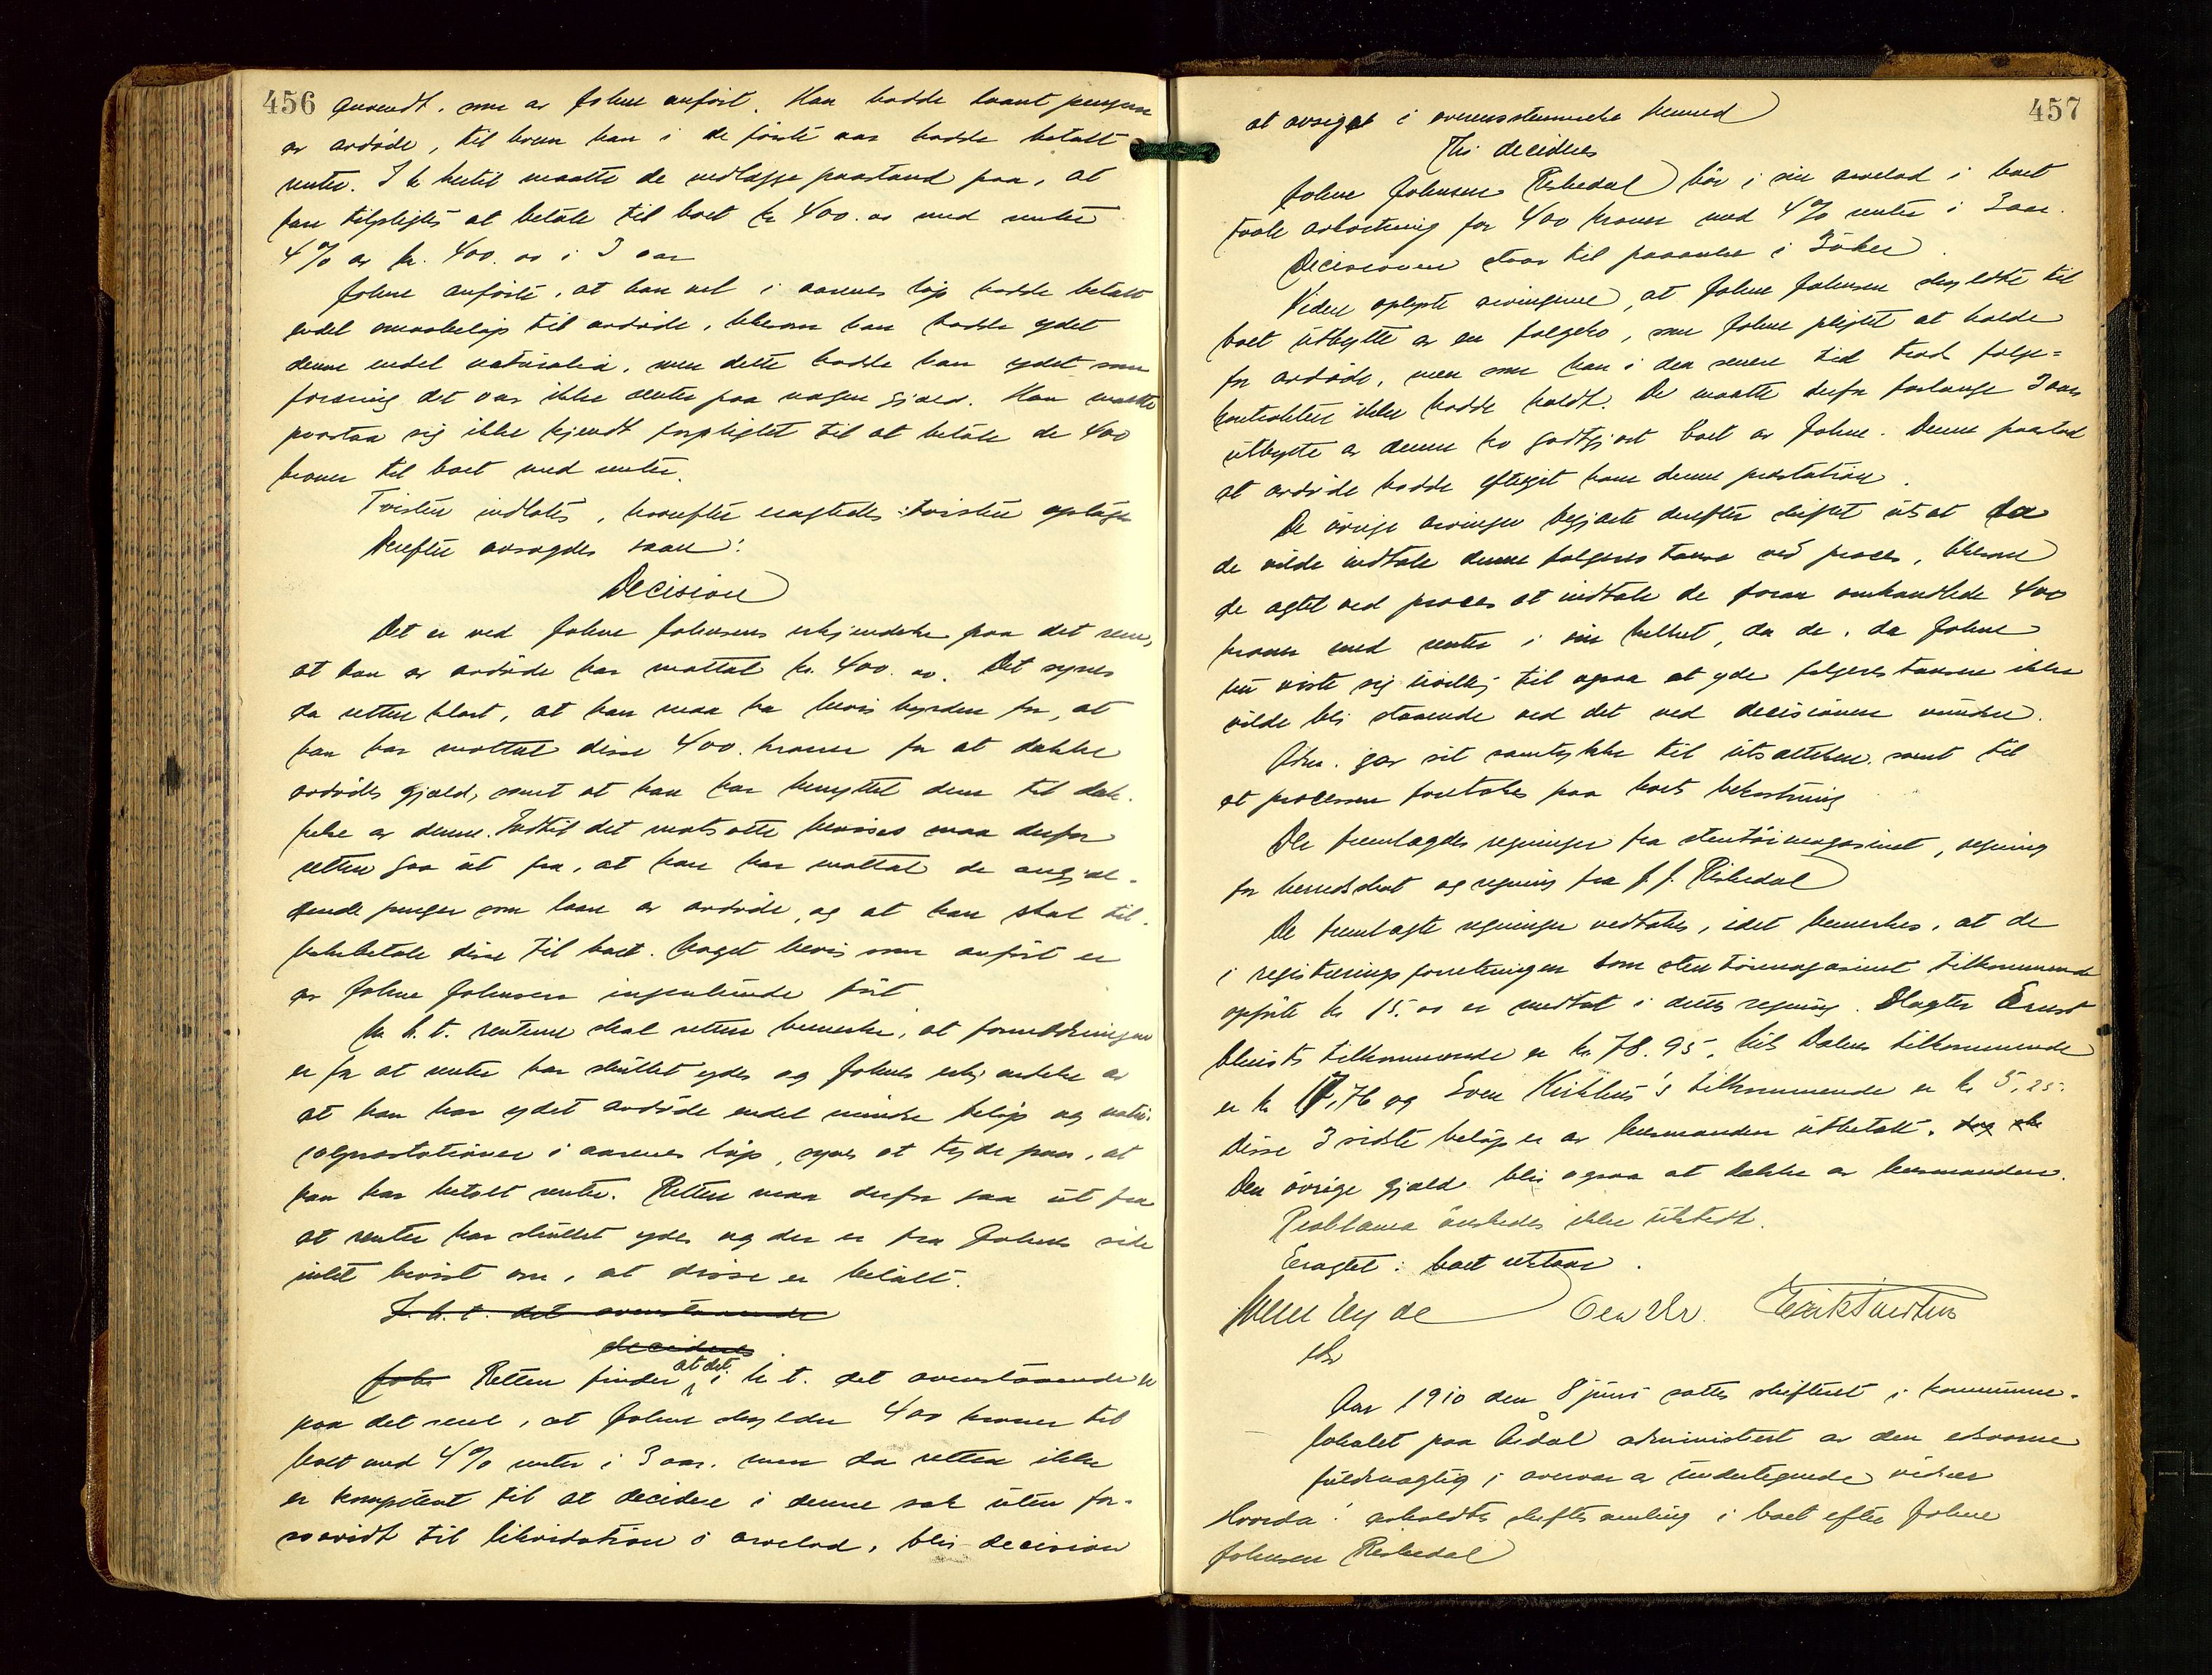 456
anvendt, som av Johne anført. Han hadde laant pengene
av avdøde, til hvem han i de første aar hadde betalt
renter. I h. hertil maatte de nedlægge paastand paa, at
han tilpligtes at betale til boet kr 400.00 med renter
4% av kr. 400.00 i 3 aar
Johne anførte, at han vel i aarenes løp hadde betalt
endel smaabeløp til avdøde, likesom han hadde ydet
denne endel naturalia, men dette hadde han ydet som
foræring det var ikke renter paa nogen gjæld. Han maatte
paastaa sig ikke kjendt forpligtet til at betale de 400
kroner til boet med renter.
Tvisten indlates, hvorefter eragtedes: tvisten optages
Derefter avsagdes saan:
Decision
Det er ved Johne Johnsens erkjendelse paa det rene,
at han av avdøde har mottat kr. 400.00. Det synes
da retten klart, at han maa ha bevisbyrden for, at
han har mottat disse 400 kroner for at dække
avdødes gjæld, samt at han har benyttet dem til dæk-
kelse av denne. Indtil det motsatte bevises maa derfor
retten gaa ut fra, at han har mottat de angjæl-
dende penger som laan av avdøde, og at han skal til-
bakebetale disse til boet. Noget bevis som anført er
av Johne Johnsen ingenlunde ført
M. h. t. renterne skal retten bemerke, at formodningen
er for at renter har skullet ydes og Johnes erkjendelse av
at han har ydet avdøde endel mindre beløp og natu-
ralprestationer i aarenes løp, synes at tyde paa, at
han har betalt renter. Retten maa derfor gaa ut fra
at renter har skullet ydes og der er fra Johnes side
intet bevist om, at disse er betalt.
I. h. t. det ovenstaaende
decideres
Joh Retten finder at det i h. t. det ovenstaaende er
paa det rene, at Johne skylder 400 kroner til
boet med 4% renter i 3 aar, men da retten ikke
er kompetent til at decidere i denne sak uten for-
saavidt til likvidation i arvelod, blir decision
457
at avsiges i overensstemmelse hermed
Thi decideres
Johne Johnsen Riskedal bør i sin arvelod i boet
taale avkortning for 400 kroner med 4% renter i 3 aar.
Decisionen staar til paaanke i 3 uker.
Videre oplyste arvingerne, at Johne Johnsen skyldte til
boet utbytte av en følgeko, som Johne pligtet at holde
for avdøde, men som han i den senere tid trods følge-
kontrakten ikke hadde holdt. De maatte derfor forlange 3 aars
utbytte av denne ko godtgjort boet av Johne. Denne paastod
at avdøde hadde eftergit ham denne prestation.
De øvrige arvinger begjærte derefter skiftet utsat da
de vilde indtale denne følgerestance ved proces, likesom
de agtet ved proces at indtale de foran omhandlede 400
kroner med renter i sin helhet, da de, da Johne
nu viste sig uvillig til ogsaa at yde følgerestancen ikke
vilde bli staaende ved det ved decisionen vundne.
Adm. gav sit samtykke til utsættelsen samt til
at processen foretokes paa boets bekostning
Der fremlagdes regninger fra stentøimagasinet, regning
for herredskat og regning fra J. J. Riskedal
De fremlagte regninger vedtokes, idet bemerkes, at de
i registreringsforretningen som stentøimagasinet tilkommende
opførte kr 15.00 er medtat i dettes regning. Slagter Ernst
tilkommende er kr 78.95, Nils Dalens tilkommende
er kr 17,76 og Sven tilkommende er kr 5,25.
Disse 3 sidste beløp er av enkemanden utbetalt.
Den øvrige gjæld blir ogsaa at dække av enkemanden.
Proklama ønskedes ikke utstedt.
Eragtet: boet utstaar.
Aar 1910 den 8 juni sattes skifteret i kommune-
lokalet paa Årdal administrert av den edsvorne
fuldmægtig i overvær av undertegnede vidner
Hvorda: avholdtes skiftesamling i boet efter Johne
Johnsen Riskedal